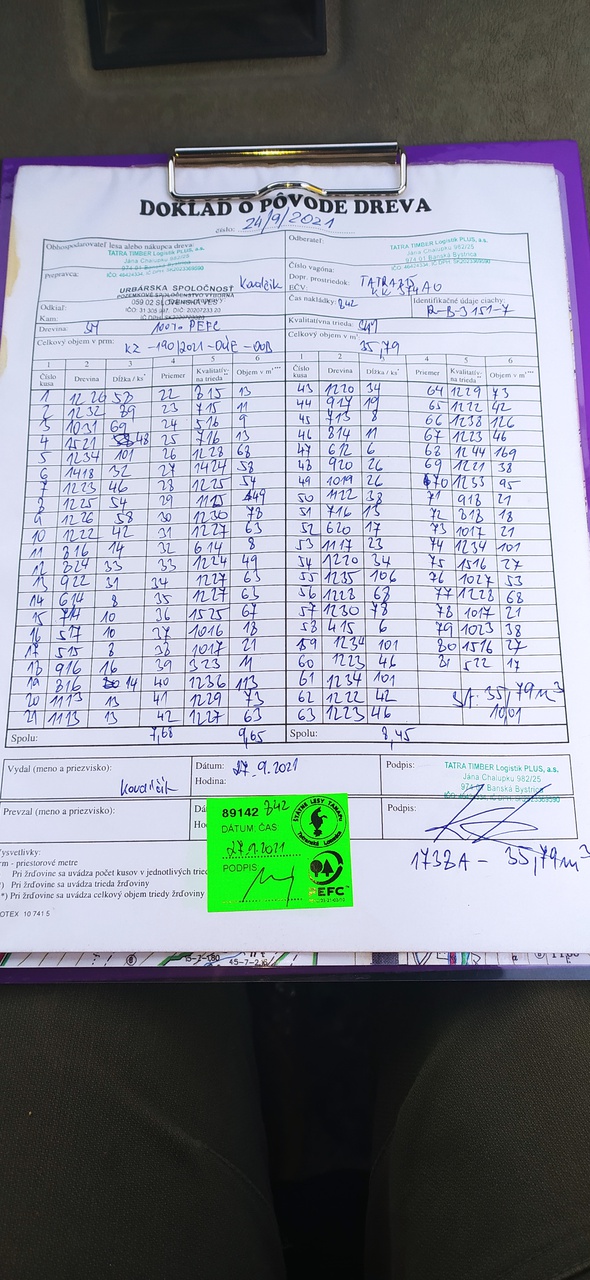 DOKLAD O PÔVODE DREVA
číslo: 24/9/2021
Obhospodarovateľ lesa alebo nákupca dreva:
TATRA TIMBER Logistik PLUS, a.s.
Jána Chalupku 982/25
974 01 Banská Bystrica
Odberateľ:
TATRA TIMBER Logistik PLUS, a.s.
Jána Chalupku 982/25
974 01 Banská Bystrica
Prepravca:
Kovalčik
URBÁRSKA SPOLOČNOSŤ
POZEMKOVÉ SPOLOČENSTVO VÝBORNÁ
059 02 SLOVENSKÁ VES
Číslo vagóna:
Dopr. prostriedok: TATRA
EČV: KK 374AU
Odkiaľ:
Kam:
Čas nakládky: 842
Identifikačné údaje ciachy:
R-B-3 151-7
Drevina: SM 100% PEFC
Kvalitatívna trieda:
Celkový objem v prm: KZ -190/2021-04E-00B
Celkový objem v m³: 35,79
1 2 3 4 5 6 1 2 3 4 5 6
Číslo kusa Drevina Dĺžka / ks Priemer Kvalitatívna trieda Objem v m³ Číslo kusa Drevina Dĺžka / ks Priemer Kvalitatívna trieda Objem v m³
1 1226 58 22 815 13 43 1220 34 64 1229 73
2 1232 89 23 715 11 44 917 19 65 1222 42
3 1031 69 24 516 9 45 713 8 66 1238 126
4 1521 48 25 716 13 46 814 11 67 1223 46
5 1234 101 26 1228 68 47 612 6 68 1244 169
6 1418 32 27 1424 58 48 920 26 69 1221 38
7 1223 46 28 1225 54 49 1019 26 70 1233 95
8 1225 54 29 1125 49 50 1122 38 71 918 21
9 1226 58 30 1230 78 51 716 13 72 818 18
10 1222 42 31 1227 63 52 620 17 73 1017 21
11 816 14 32 614 8 53 1117 23 74 1234 101
12 824 33 33 1224 49 54 1220 34 75 1516 27
13 922 31 34 1227 63 55 1235 106 76 1027 53
14 614 8 35 1227 63 56 1228 68 77 1228 68
15 714 10 36 1525 67 57 1230 78 78 1017 21
16 517 10 37 1016 18 58 415 6 79 1023 38
17 515 8 38 1017 21 59 1234 101 80 1516 27
18 916 16 39 323 11 60 1223 46 81 522 17
19 816 14 40 1236 113 61 1234 101
20 1113 13 41 1229 73 62 1222 42 35,79m³
21 1113 13 42 1227 63 63 1223 46 10,01
Spolu: 7,68 9,65 Spolu: 8,45
Vydal (meno a priezvisko):
Kovalčik
Dátum: 27.9.2021
Hodina:
Podpis:
TATRA TIMBER Logistik PLUS, a.s.
Jána Chalupku 982/25
974 01 Banská Bystrica
Prevzal (meno a priezvisko):
Podpis:
89142 842
DÁTUM: ČAS
27.9.2021
PODPIS
ŠTÁTNE LESY TANAPU
PEFC
173BA - 35,79m³
ysvetlivky:
rm - priestorové metre
Pri žrďovine sa uvádza počet kusov v jednotlivých
) Pri žrďovine sa uvádza trieda žrďoviny
*) Pri žrďovine sa uvádza celkový objem triedy žrďoviny
OTEX 10 741 5